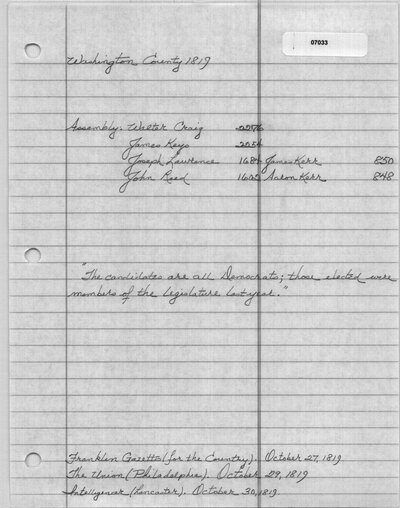 07033
Washington County 1819
Assembly: Walter Craig
James Keys 2054
Joseph Lawrence James Kerr 850
John Reed Aaron Kerr 848
"The candidates are all Democrats; those elected were
members of the legislature last year."
Franklin Gazette (for the Country). October 27, 1819
The Union (Philadelphia). October 29, 1819
Intelligencer (Lancaster). October 30, 1819